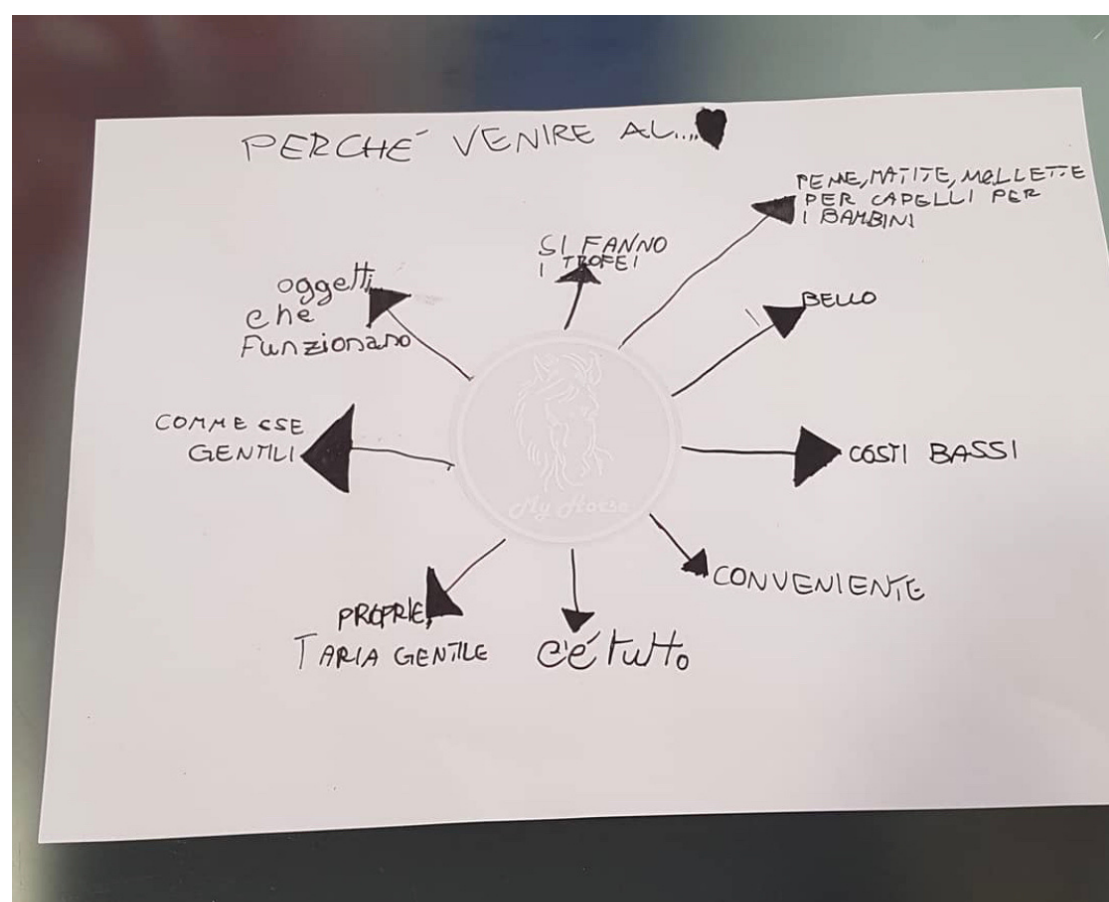 PERCHÉ VENIRE AL....
PEME, MATITE, MOLLETTE
PER CAPELLI PER
I BAMBINI
SI FANNO
I TROFEI
oggetti
che
Funzionano
BELLO
COMMESSE
GENTILI
My Horse
COSTI BASSI
CONVENIENTE
PROPRIE,
TARIA GENTILE
c'é tutto